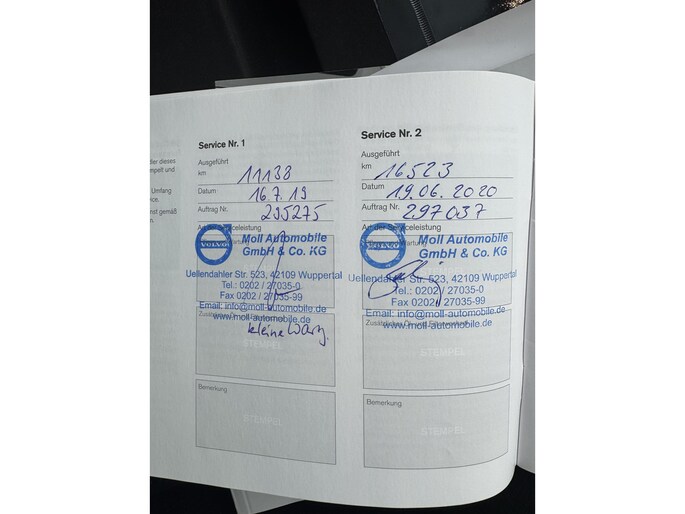 der dieses
mpelt und
Umfang
nst gemäß
Service Nr. 1
Ausgeführt
km 11138
Datum 16.7.19
Auftrag Nr. 295275
Art der Serviceleistung
VOLVO
Moll Automobile
GmbH & Co. KG
Uellendahler Str. 523, 42109 Wuppertal
Tel.: 0202 / 27035-0
Fax 0202 / 27035-99
Email: info@moll-automobile.de
www.moll-automobile.de
kleine Wartg.
STEMPEL
Bemerkung
STEMPEL
Service Nr. 2
Ausgeführt
km 16523
Datum 19.06.2020
Auftrag Nr. 297037
Art der Serviceleistung
VOLVO
Moll Automobile
GmbH & Co. KG
Uellendahler Str. 523, 42109 Wuppertal
Tel.: 0202 / 27035-0
Fax 0202 / 27035-99
Email: info@moll-automobile.de
www.moll-automobile.de
STEMPEL
Bemerkung
STEMPEL